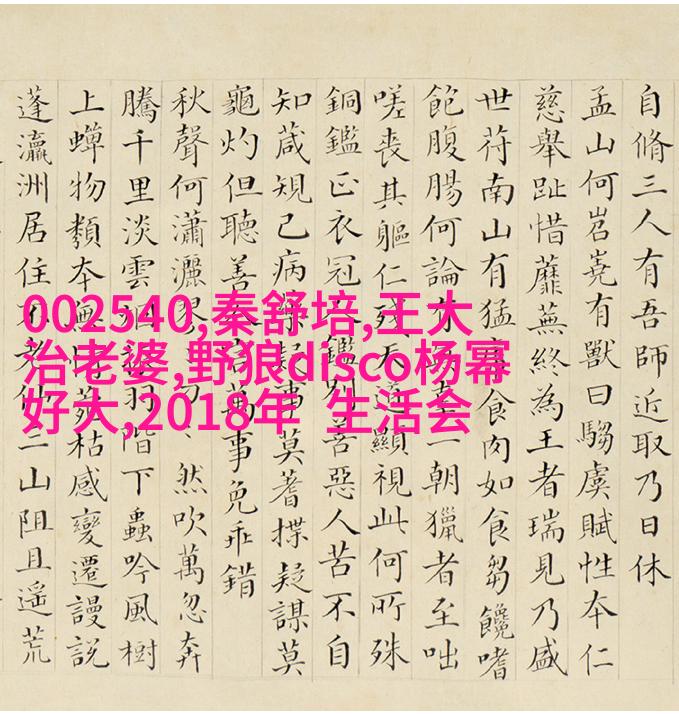 自脩三人有吾師近取乃日休
孟山何岧嶤有獸曰騶虞賦性本仁
慈舉趾惜蘼蕪終為王者瑞見乃盛
世苻南山有猛食肉如食芻饞嗜
飽腹腸何論一朝獵者至咄
嗟喪其軀仁殘天道顯視此何所殊
銅鑑正衣冠鑑別善惡人苦不自
知葴規己病疑事莫蓍揲疑謀莫
龜灼但聽善言萬事免乖錯
秋聲何瀟灑然吹萬忽奔
騰千里淡雲羽階下蟲吟風樹
上蟬物類本無枯感變遷謾説
蓬瀛洲居住不老仙三山阻且遙荒
002540,秦舒培,王大
治老婆,野狼disco杨幂
好大,2018年 生活会